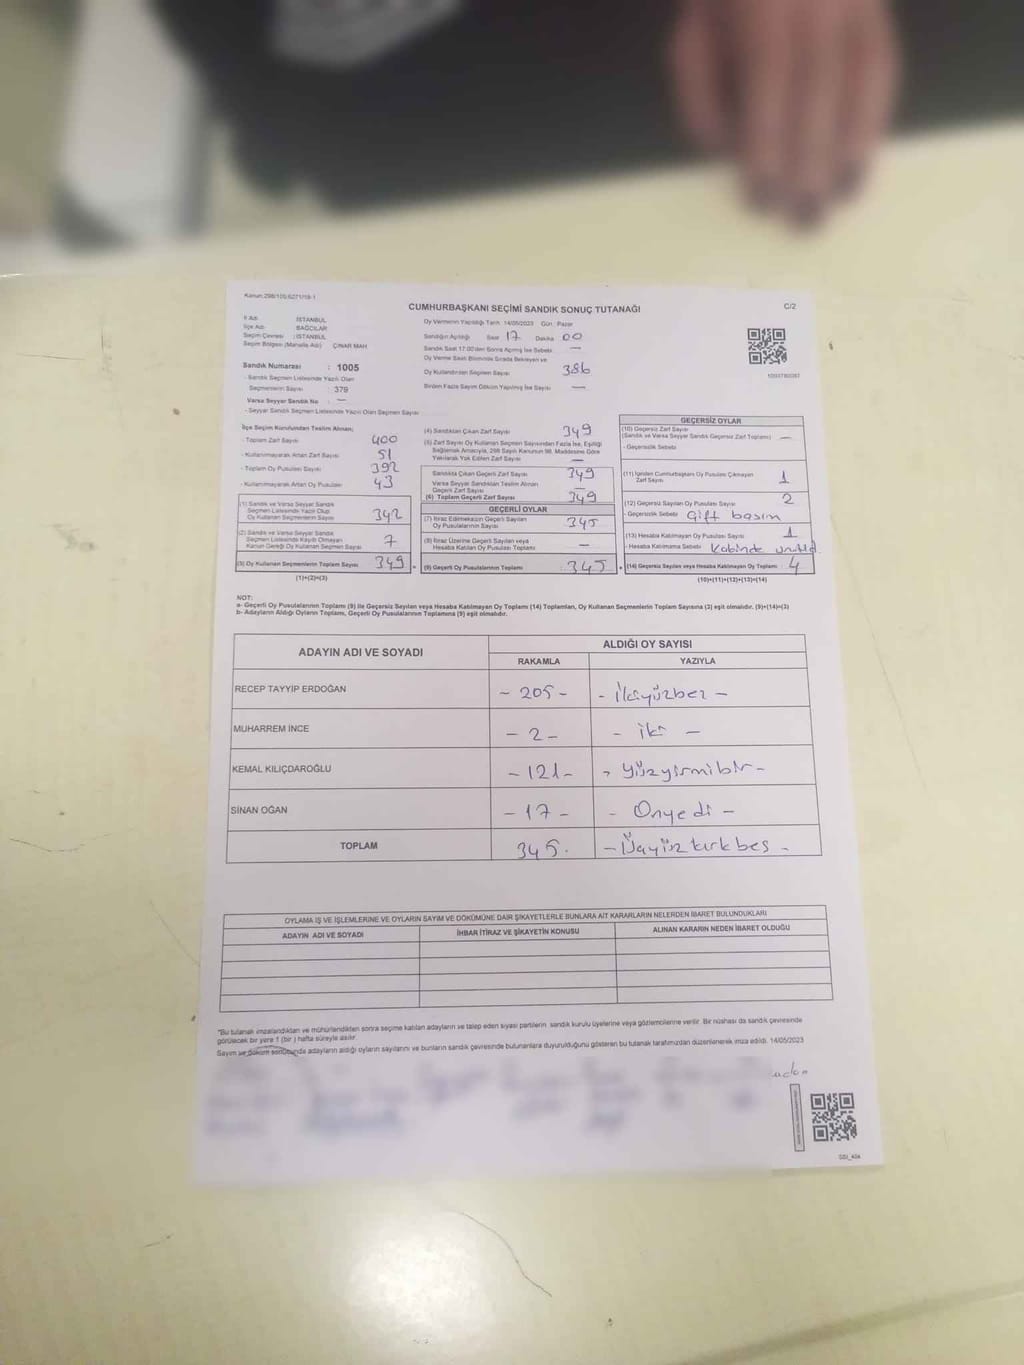 Kanun:298/105;6271/18-1
CUMHURBAŞKANI SEÇİMİ SANDIK SONUÇ TUTANAĞI
C/2
İl Adı : İSTANBUL
İlçe Adı : BAĞCILAR
Seçim Çevresi : İSTANBUL
Seçim Bölgesi (Mahalle Adı) : ÇINAR MAH
Sandık Numarası : 1005
- Sandık Seçmen Listesinde Yazılı Olan
Seçmenlerin Sayısı : 379
Varsa Seyyar Sandık No : —
- Seyyar Sandık Seçmen Listesinde Yazılı Olan Seçmen Sayısı
Oy Vermenin Yapıldığı Tarih 14/05/2023 Gün : Pazar
Sandığın Açıldığı Saat 17 Dakika 00
Sandık Saat 17.00'den Sonra Açılmış İse Sebebi —
Oy Verme Saati Bitiminde Sırada Bekleyen ve
Oy Kullandırılan Seçmen Sayısı 386
Birden Fazla Sayım Döküm Yapılmış İse Sayısı —
İlçe Seçim Kurulundan Teslim Alınan;
- Toplam Zarf Sayısı : 400
- Kullanılmayarak Artan Zarf Sayısı : 51
- Toplam Oy Pusulası Sayısı : 392
- Kullanılmayarak Artan Oy Pusulası : 43
(1) Sandık ve Varsa Seyyar Sandık
Seçmen Listesinde Yazılı Olup
Oy Kullanan Seçmenlerin Sayısı : 342
(2) Sandık ve Varsa Seyyar Sandık
Seçmen Listesinde Kayıtlı Olmayan
Kanun Gereği Oy Kullanan Seçmen Sayısı : 7
(3) Oy Kullanan Seçmenlerin Toplam Sayısı : 349
(1)+(2)=(3)
(4) Sandıktan Çıkan Zarf Sayısı : 349
(5) Zarf Sayısı Oy Kullanan Seçmen Sayısından Fazla İse, Eşitliği
Sağlamak Amacıyla, 298 Sayılı Kanunun 98. Maddesine Göre
Yakılarak Yok Edilen Zarf Sayısı : —
Sandıkta Çıkan Geçerli Zarf Sayısı : 349
Varsa Seyyar Sandıktan Teslim Alınan
Geçerli Zarf Sayısı : —
(6) Toplam Geçerli Zarf Sayısı : 349
GEÇERLİ OYLAR
(7) İtiraz Edilmeksizin Geçerli Sayılan
Oy Pusulalarının Sayısı : 345
(8) İtiraz Üzerine Geçerli Sayılan veya
Hesaba Katılan Oy Pusulası Toplamı : —
(9) Geçerli Oy Pusulalarının Toplamı : 345
GEÇERSİZ OYLAR
(10) Geçersiz Zarf Sayısı
(Sandık ve Varsa Seyyar Sandık Geçersiz Zarf Toplamı) : —
- Geçersizlik Sebebi
(11) İçinden Cumhurbaşkanı Oy Pusulası Çıkmayan
Zarf Sayısı : 1
(12) Geçersiz Sayılan Oy Pusulası Sayısı : 2
- Geçersizlik Sebebi Çift basım
(13) Hesaba Katılmayan Oy Pusulası Sayısı : 1
- Hesaba Katılmama Sebebi Kabinde unutul.
(14) Geçersiz Sayılan veya Hesaba Katılmayan Oy Toplamı : 4
(10)+(11)+(12)+(13)=(14)
NOT:
a- Geçerli Oy Pusulalarının Toplamı (9) ile Geçersiz Sayılan veya Hesaba Katılmayan Oy Toplamı (14) Toplamları, Oy Kullanan Seçmenlerin Toplam Sayısına (3) eşit olmalıdır. (9)+(14)=(3)
b- Adayların Aldığı Oyların Toplamı, Geçerli Oy Pusulalarının Toplamına (9) eşit olmalıdır.
ADAYIN ADI VE SOYADI
ALDIĞI OY SAYISI
RAKAMLA YAZIYLA
RECEP TAYYİP ERDOĞAN - 205 - - İkiyüzbeş -
MUHARREM İNCE - 2 - - iki -
KEMAL KILIÇDAROĞLU - 121 - - Yüzyirmibir -
SİNAN OĞAN - 17 - - Onyedi -
TOPLAM 345. - Üçyüzkırkbeş -
OYLAMA İŞ VE İŞLEMLERİNE VE OYLARIN SAYIM VE DÖKÜMÜNE DAİR ŞİKAYETLERLE BUNLARA AİT KARARLARIN NELERDEN İBARET BULUNDUKLARI
ADAYIN ADI VE SOYADI İHBAR İTİRAZ VE ŞİKAYETİN KONUSU ALINAN KARARIN NEDEN İBARET OLDUĞU
"Bu tutanak imzalandıktan ve mühürlendikten sonra seçime katılan adayların ve talep eden siyasi partilerin sandık kurulu üyelerine veya gözlemcilerine verilir. Bir nüshası da sandık çevresinde
görülecek bir yere 1 (bir ) hafta süreyle asılır.
Sayım ve döküm sonucunda adayların aldığı oyların sayılarını ve bunların sandık çevresinde bulunanlara duyurulduğunu gösteren bu tutanak tarafımızdan düzenlenerek imza edildi. 14/05/2023